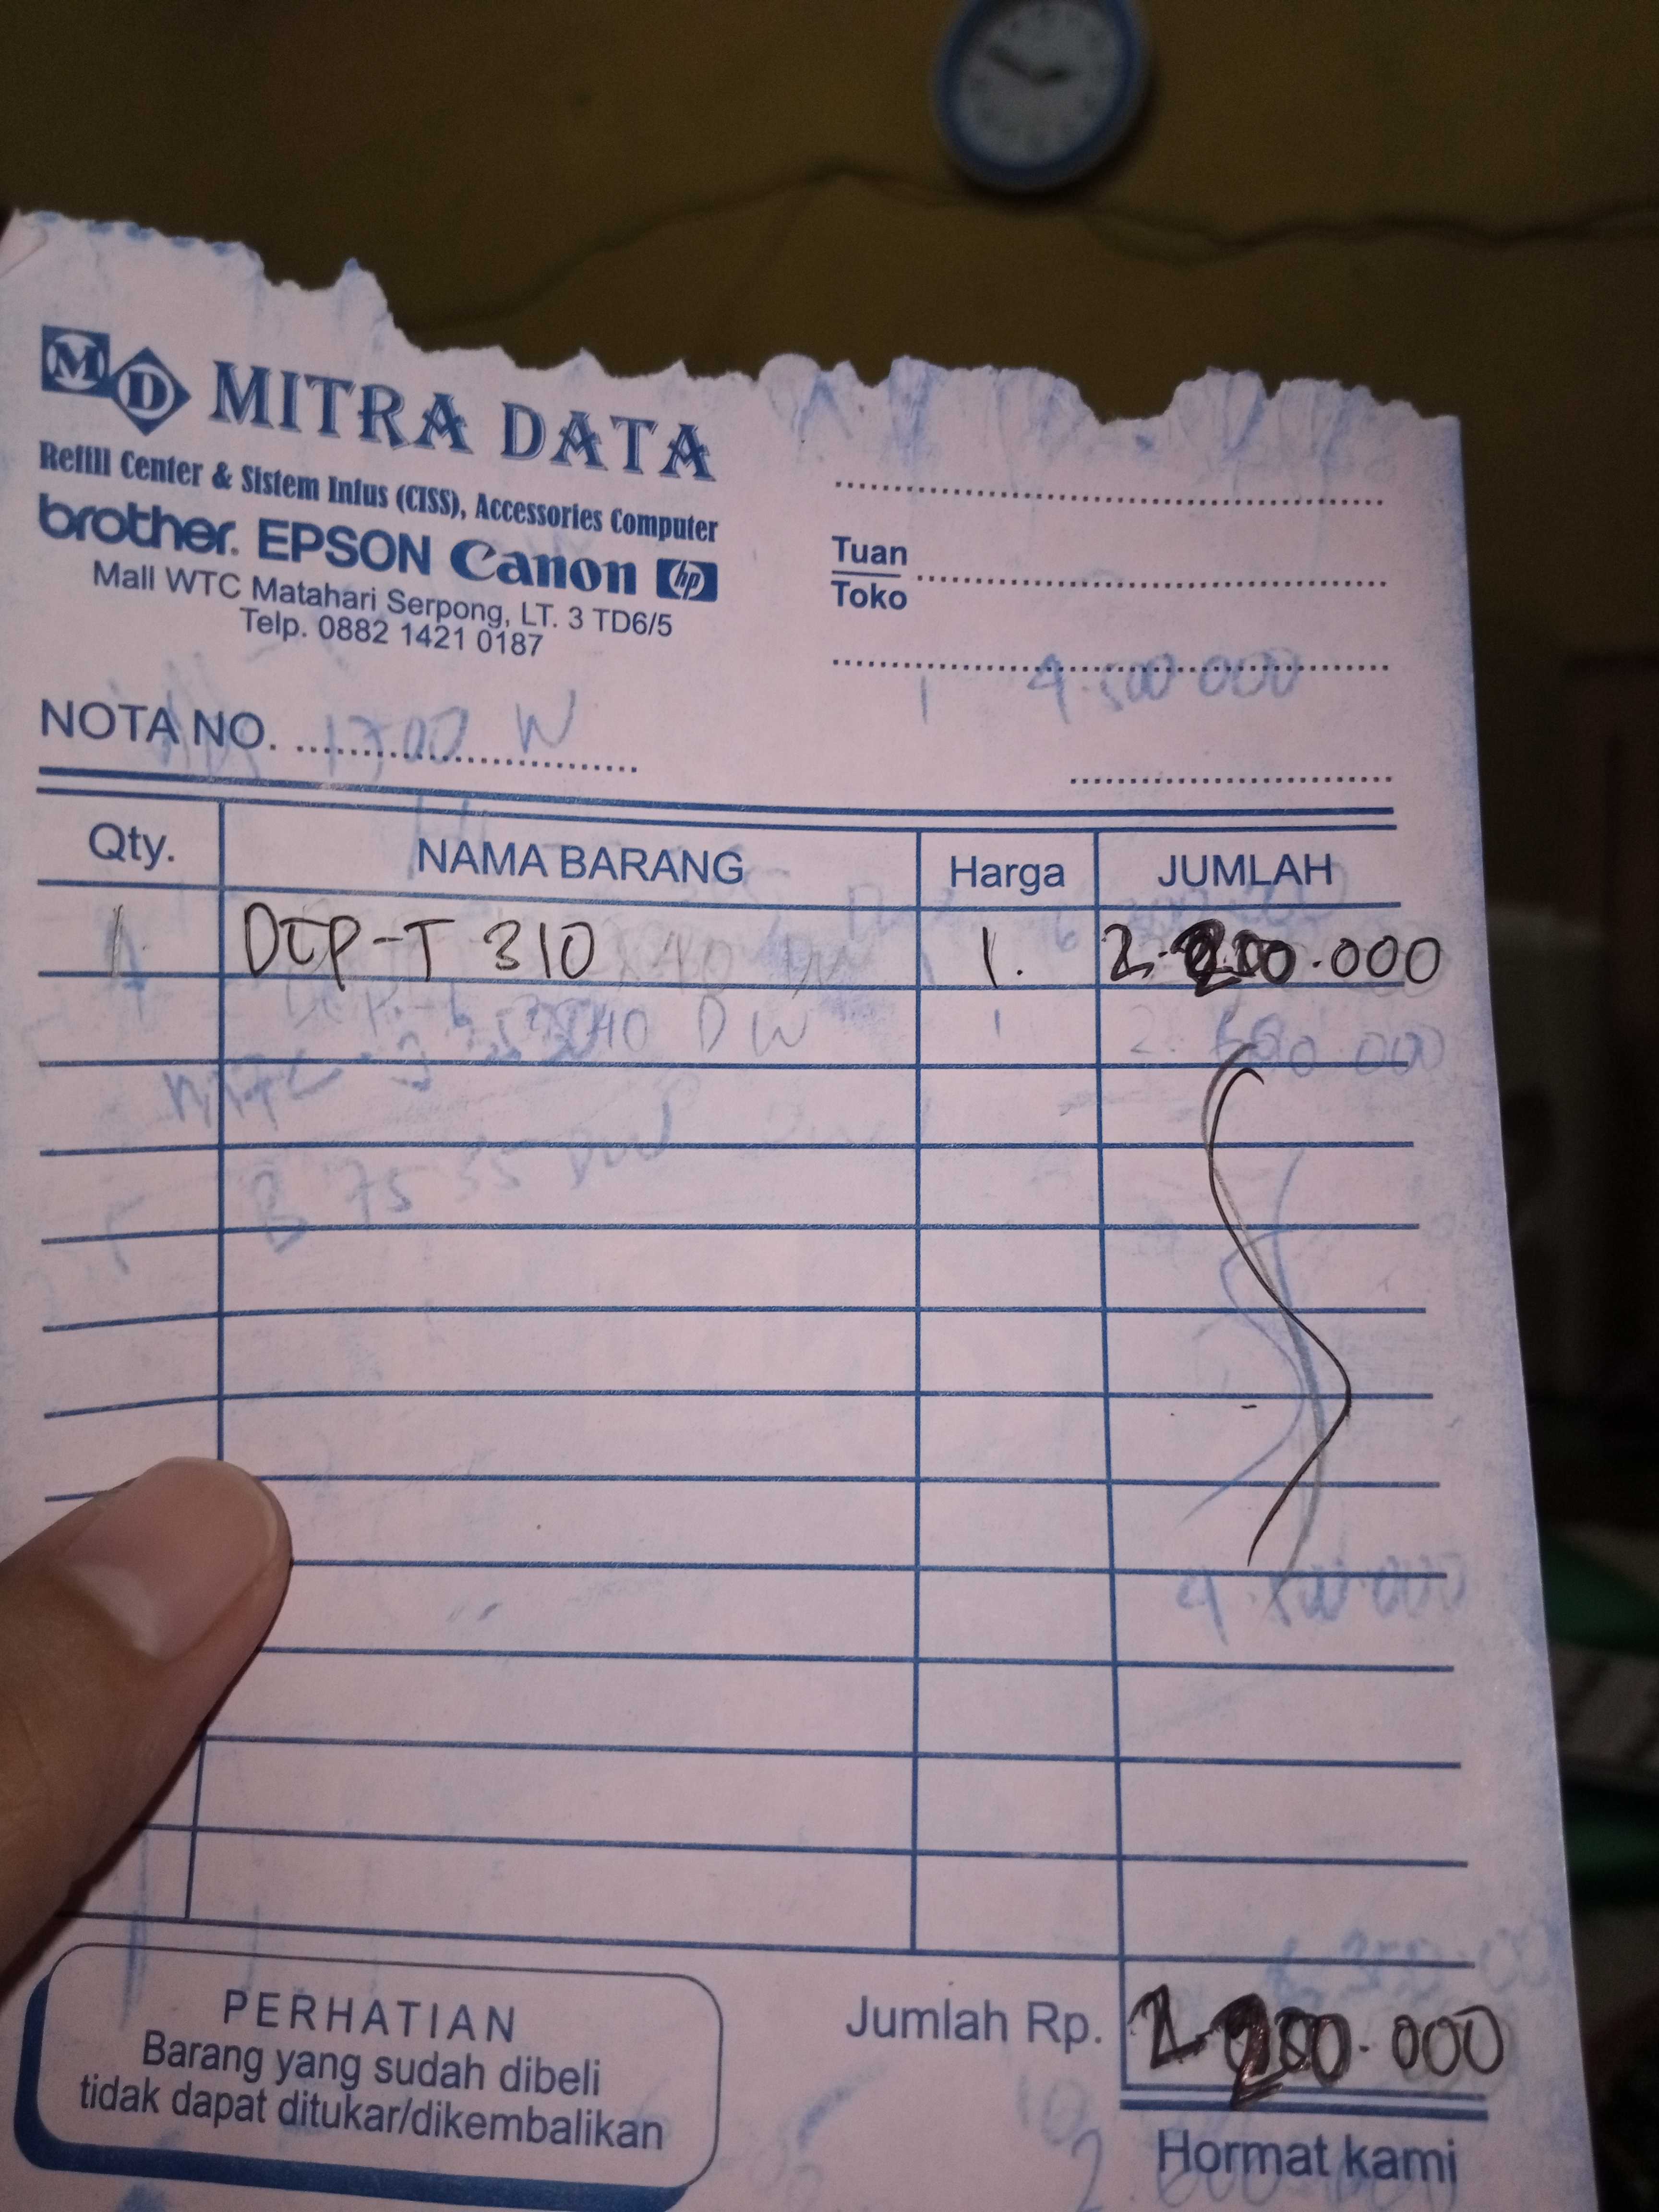 MD MITRA DATA
Refill Center & Sistem Infus (CISS), Accessories Computer
brother. EPSON Canon hp
Mall WTC Matahari Serpong, LT. 3 TD6/5
Telp. 0882 1421 0187
Tuan
Toko
1 9.500 000
NOTA NO. 1500 W
Qty. NAMA BARANG Harga JUMLAH
1. DCP-T 310 1. 2.200.000
40 DW 1 2. 000
B 75 35 DW
9.500.000
PERHATIAN
Barang yang sudah dibeli
tidak dapat ditukar/dikembalikan
Jumlah Rp. 2.200.000
Hormat kami